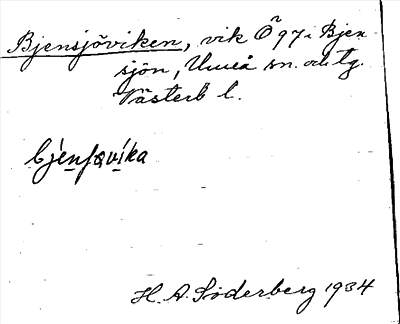 Bjensjöviken, vik Ö 97 i Bjen
sjön, Umeå sn. och tg.
Västerb l.
bjensvika
H. A. Söderberg 1934